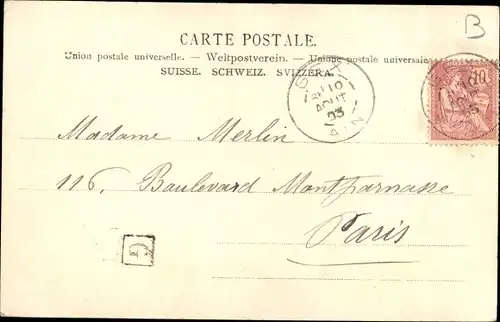 B
CARTE POSTALE.
Union postale universelle. — Weltpostverein. — Unione postale universale
SUISSE. SCHWEIZ. SVIZZERA.
10
AOUT
03
AIN
10
Madame Merlin
116, Boulevard Montparnasse
Paris